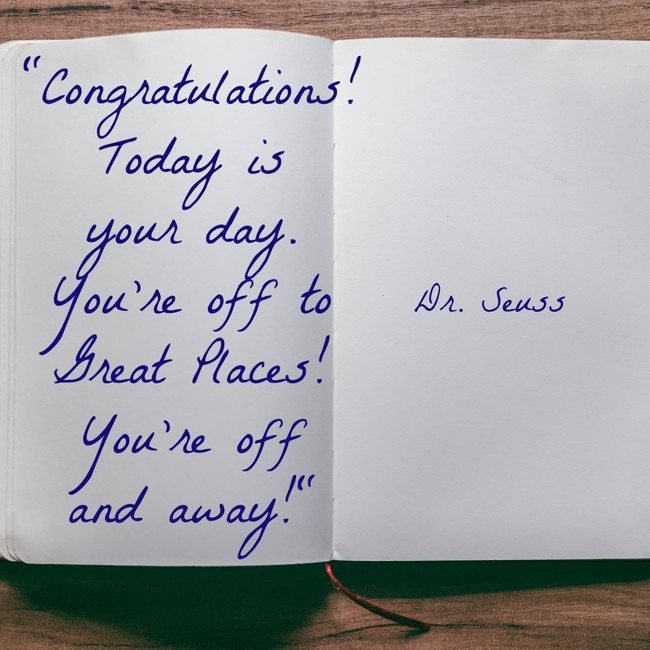 “Congratulations!
Today is
your day.
You're off to
Great Places!
You're off
and away!“
Dr. Seuss